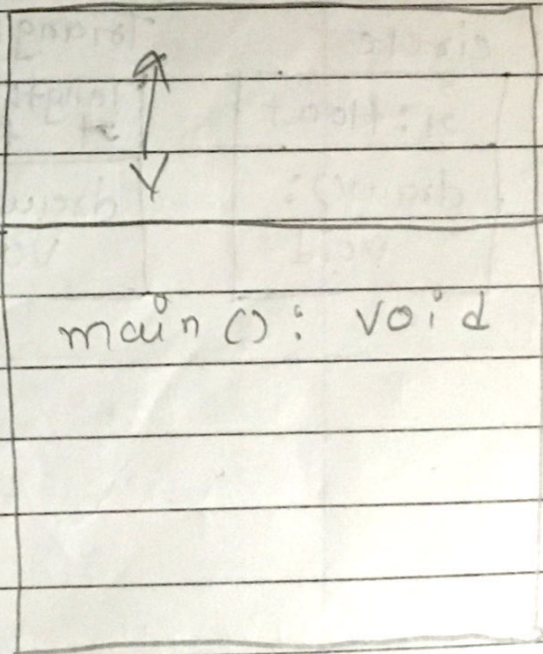 main(): void